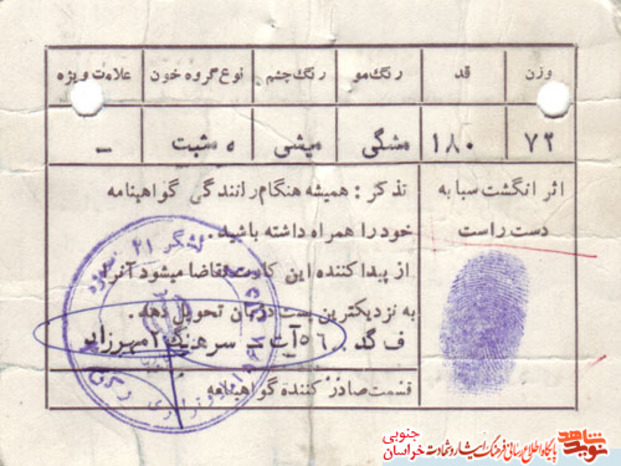 وزن قد رنگ مو رنگ چشم نوع گروه خون علامت ویژه
۷۲ ۱۸۰ مشگی میشی o مثبت -
اثر انگشت سبابه
دست راست
تذکر : همیشه هنگام رانندگی گواهینامه
خود را همراه داشته باشید .
از پیدا کننده این کارت تقاضا میشود آنرا
به نزدیکترین پست دژبان تحویل دهد .
ف گد . ۵۶ آت - سرهنگ
قسمت صادر کننده گواهینامه
لشگر ۲۱
نوید شاهد
پایگاه اطلاع رسانی فرهنگ ایثار و شهادت
خراسان جنوبی